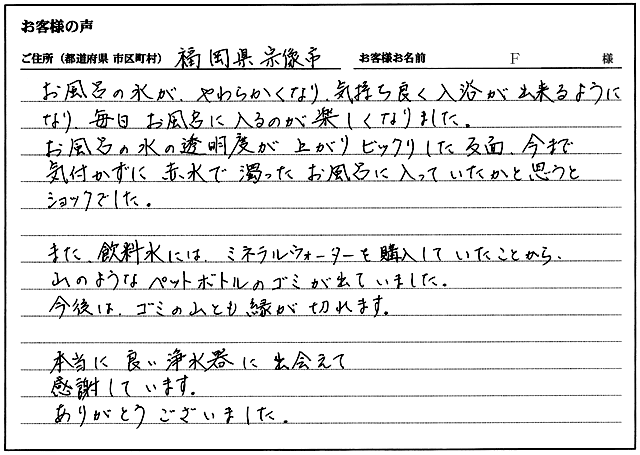 お客様の声
ご住所（都道府県 市区町村） 福岡県宗像市 お客様お名前 F 様
お風呂の水が、やわらかくなり、気持ち良く入浴が出来るように
なり毎日お風呂に入るのが楽しくなりました。
お風呂の水の透明度が上がりビックリした反面、今まで
気付かずに赤水で濁ったお風呂に入っていたかと思うと
ショックでした。
また、飲料水には、ミネラルウォーターを購入していたことから、
山のようなペットボトルのゴミが出ていました。
今後は、ゴミの山とも縁が切れます。
本当に良い浄水器に出会えて
感謝しています。
ありがとうございました。